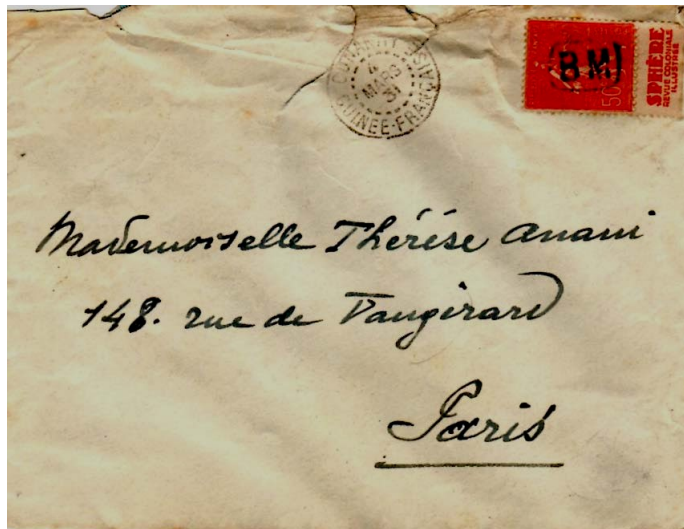 CONAKRY
4
MARS
31
GUINÉE-FRANÇAISE
(BM)
50c
SPHÈRE
REVUE COLONIALE
ILLUSTRÉE
Mademoiselle Thérèse Anani
148. rue de Vaugirard
Paris